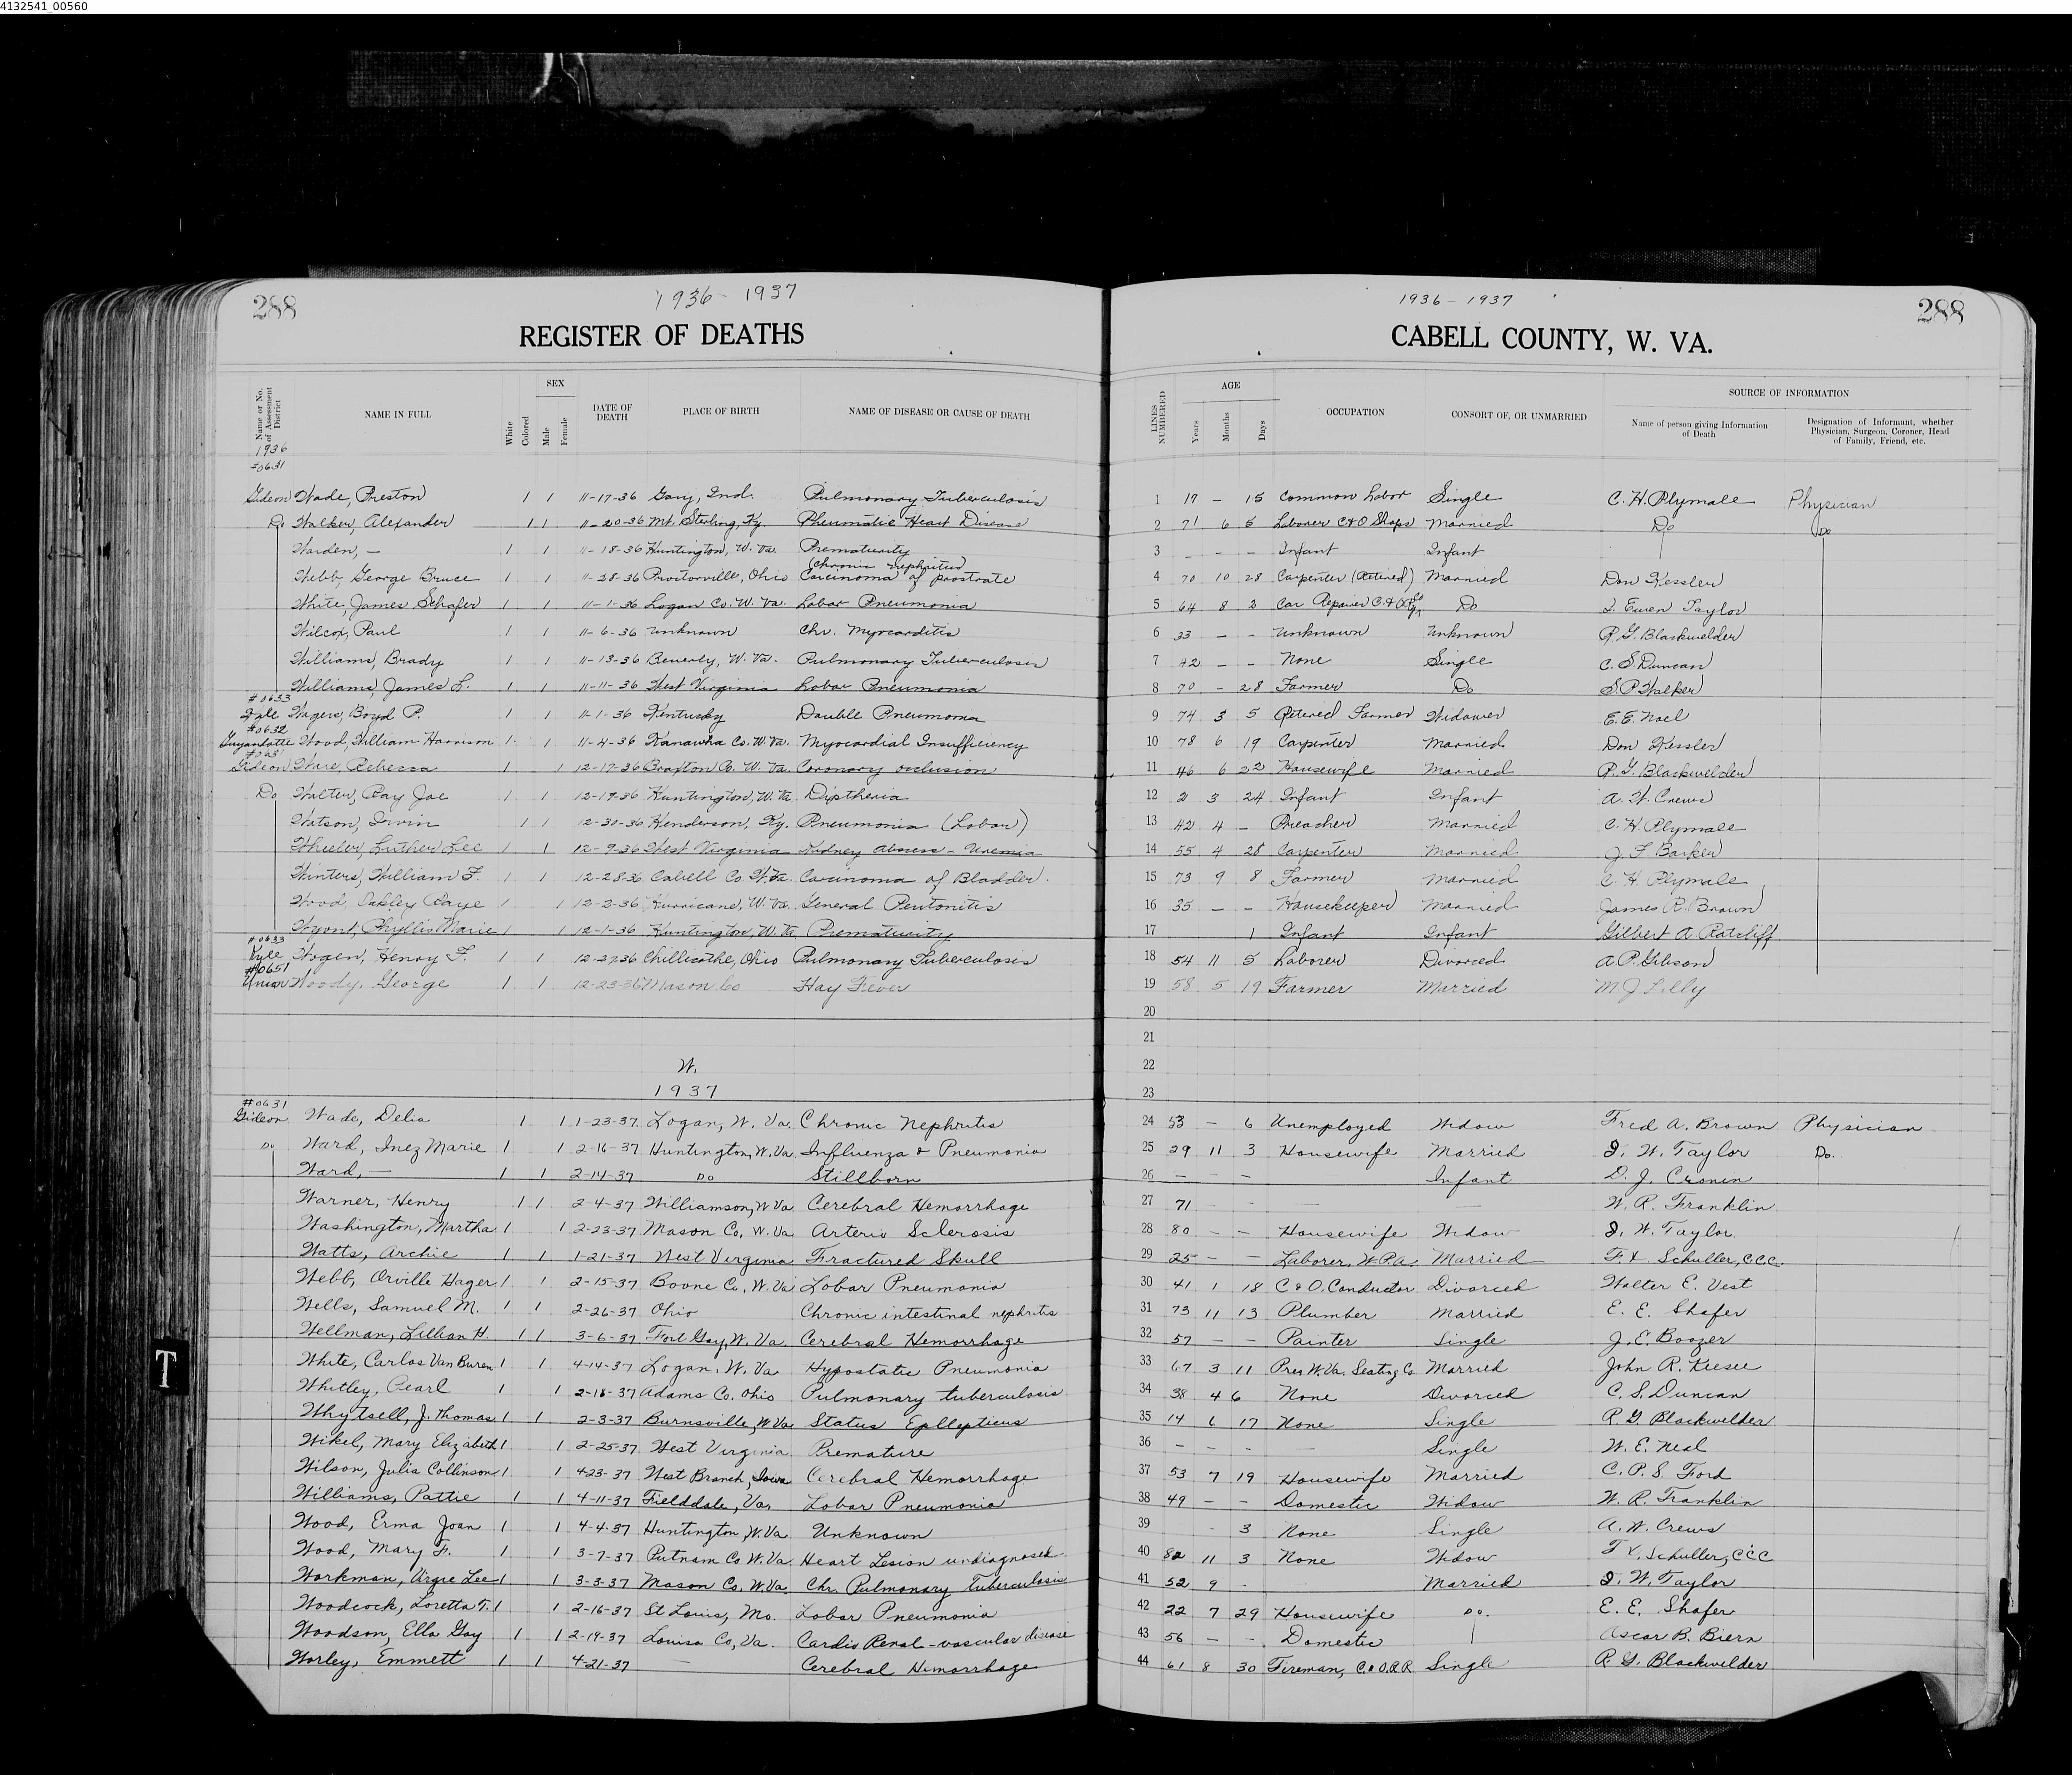 4132541_00560
288 1936 - 1937 1936 - 1937 288
REGISTER OF DEATHS CABELL COUNTY, W. VA.
Name or No. of Assessment District NAME IN FULL White Colored SEX Male Female DATE OF DEATH PLACE OF BIRTH NAME OF DISEASE OR CAUSE OF DEATH LINES NUMBERED AGE Years Months Days OCCUPATION CONSORT OF, OR UNMARRIED SOURCE OF INFORMATION Name of person giving Information of Death Designation of Informant, whether Physician, Surgeon, Coroner, Head of Family, Friend, etc.
1936
#0631
Gideon Wade, Preston 1 1 11-17-36 Gary, Ind. Pulmonary Tuberculosis 1 17 - 15 Common Labor Single C. H. Plymale Physician
Do Walker, Alexander 1 1 11-20-36 Mt. Sterling, Ky. Rheumatic Heart Disease 2 71 6 5 Laborer C&O Shops Married Do Do
Warden, — 1 1 11-18-36 Huntington, W. Va. Prematurity 3 - - - Infant Infant
Webb, George Bruce 1 1 11-28-36 Proctorville, Ohio (Chronic nephritis) Carcinoma of prostrate 4 70 10 28 Carpenter (Retired) Married Don Kessler
White, James Schafer 1 1 11-1-36 Logan Co. W. Va. Lobar Pneumonia 5 64 8 2 Car Repairer C.&O. Do I. Ewen Taylor
Wilcox, Paul 1 1 11-6-36 Unknown Chr. Myocarditis 6 33 - - Unknown Unknown R. G. Blackwelder
Williams, Brady 1 1 11-13-36 Beverly, W. Va. Pulmonary Tuberculosis 7 42 - - None Single C. S. Duncan
Williams, James L. 1 1 11-11-36 West Virginia Lobar Pneumonia 8 70 - 28 Farmer Do S. P. Walker
#0633
Wagers, Boyd P. 1 1 11-1-36 Kentucky Double Pneumonia 9 74 3 5 Retired Farmer Widower E. E. Noel
#0632
Guyandotte Wood, William Harrison 1 1 11-4-36 Kanawha Co. W. Va. Myocardial Insufficiency 10 78 6 19 Carpenter Married Don Kessler
Gideon Ware, Rebecca 1 1 12-17-36 Braxton Co. W. Va. Coronary occlusion 11 46 6 22 Housewife Married R. G. Blackwelder
Do Walter, Ray Joe 1 1 12-19-36 Huntington, W. Va. Diptheria 12 2 3 24 Infant Infant A. W. Crews
Watson, Irvin 1 1 12-30-36 Henderson, Ky. Pneumonia (Lobar) 13 42 4 - Preacher Married C. H. Plymale
Wheeler, Luther Lee 1 1 12-9-36 West Virginia Kidney Abscess - Uremia 14 55 4 28 Carpenter Married J. F. Barker
Winters, William F. 1 1 12-28-36 Cabell Co. W. Va. Carcinoma of Bladder. 15 73 9 8 Farmer Married C. H. Plymale
Wood, Oakley Raye 1 1 12-2-36 Hurricane, W. Va. General Peritonitis 16 35 - - Housekeeper Married James R. Brown
Wyont, Phyllis Marie 1 1 12-1-36 Huntington, W. Va. Prematurity 17 1 Infant Infant Gilbert A. Ratcliff
#0633
Kyle Wogen, Henry F. 1 1 12-27-36 Chillicothe, Ohio Pulmonary Tuberculosis 18 54 11 5 Laborer Divorced A. P. Gibson
#0651
Union Woody, George 1 1 12-23-36 Mason Co Hay Fever 19 58 5 19 Farmer Married M J Lilly
20
21
W. 22
1937 23
#0631
Gideon Wade, Delia 1 1 1-23-37 Logan, W. Va. Chronic Nephritis 24 53 - 6 Unemployed Widow Fred A. Brown Physician
Do Ward, Inez Marie 1 1 2-16-37 Huntington, W. Va. Influenza & Pneumonia 25 29 11 3 Housewife Married I. W. Taylor Do.
Ward, — 1 1 2-14-37 Do Stillborn 26 - - - Infant D. J. Cronin
Warner, Henry 1 1 2-4-37 Williamson, W Va. Cerebral Hemorrhage 27 71 - - — — W. R. Franklin
Washington, Martha 1 1 2-23-37 Mason Co, W. Va. Arterio Sclerosis 28 80 - - Housewife Widow I. W. Taylor
Watts, Archie 1 1 1-21-37 West Virginia Fractured Skull 29 25 - - Laborer, W.P.A. Married F. X. Schuller, CCC.
Webb, Orville Hager 1 1 2-15-37 Boone Co, W. Va Lobar Pneumonia 30 41 1 18 C & O. Conductor Divorced Walter E. Vest
Wells, Samuel M. 1 1 2-26-37 Ohio Chronic intestinal nephritis 31 73 11 13 Plumber Married E. E. Shafer
Wellman, Lillian H. 1 1 3-6-37 Fort Gay, W. Va. Cerebral Hemorrhage 32 57 - - Painter Single J. E. Boozer
White, Carlos Van Buren 1 1 4-14-37 Logan, W. Va Hypostatic Pneumonia 33 67 3 11 Pres. W. Va. Seating Co. Married John R. Kresee
Whitley, Pearl 1 1 2-18-37 Adams Co. Ohio Pulmonary tuberculosis 34 38 4 6 None Divorced C. S. Duncan
Whytsell, J. Thomas 1 1 2-3-37 Burnsville, W. Va Status Epllepticus 35 14 6 17 None Single R. G. Blackwelder
Wikel, Mary Elizabeth 1 1 2-25-37 West Virginia Premature 36 - - - — Single W. E. Neal
Wilson, Julia Collinson 1 1 4-23-37 West Branch, Iowa Cerebral Hemorrhage 37 53 7 19 Housewife Married C. P. S. Ford
Williams, Pattie 1 1 4-11-37 Fielddale, Va. Lobar Pneumonia 38 49 - - Domestic Widow W. R. Franklin
Wood, Erma Joan 1 1 4-4-37 Huntington, W. Va Unknown 39 - 3 None Single A. W. Crews
Wood, Mary F. 1 1 3-7-37 Putnam Co W. Va. Heart Lesion undiagnosed 40 82 11 3 None Widow F X. Schuller, CCC
Workman, Virgie Lee 1 1 3-3-37 Mason Co, W. Va. Chr. Pulmonary Tuberculosis 41 52 9 - Married I. W. Taylor
Woodcock, Loretta T. 1 1 2-16-37 St Louis, Mo. Lobar Pneumonia 42 22 7 29 Housewife Do. E. E. Shafer
Woodson, Ella Gay 1 1 2-19-37 Louisa Co, Va. Cardio Renal-vascular disease 43 56 - - Domestic Oscar B. Biern
Worley, Emmett 1 1 4-21-37 — Cerebral Hemorrhage 44 61 8 30 Fireman, C. & O. R.R. Single R. G. Blackwelder
T